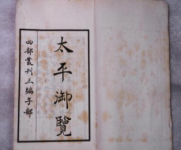 四部叢刊三編子部
太平御覽